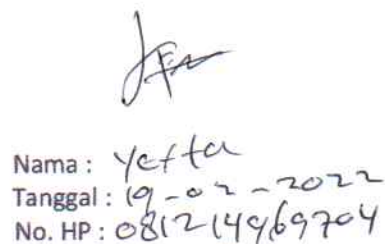 Nama : Yetta
Tanggal : 19-02-2022
No. HP : 081214969704